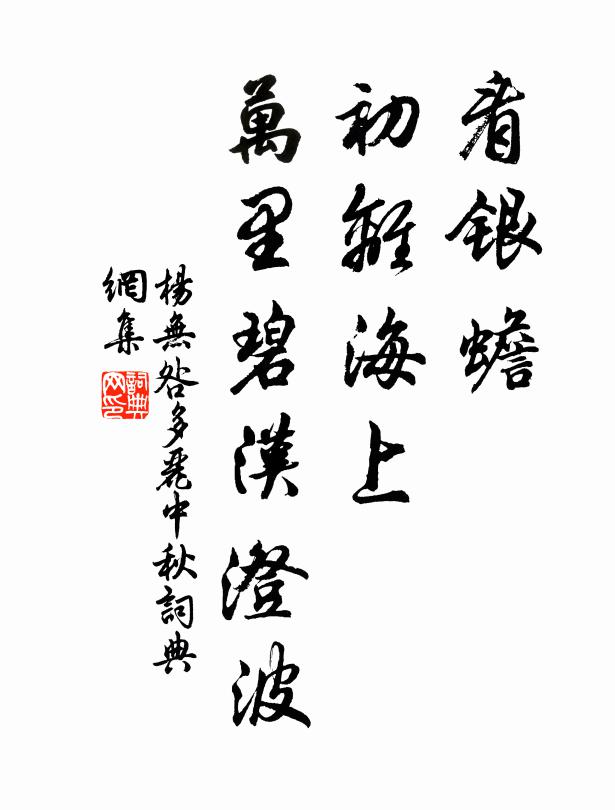 看銀蟾
初離海上
萬里碧漢澄波
楊無咎多麗中秋詞典
網集
詞典網印